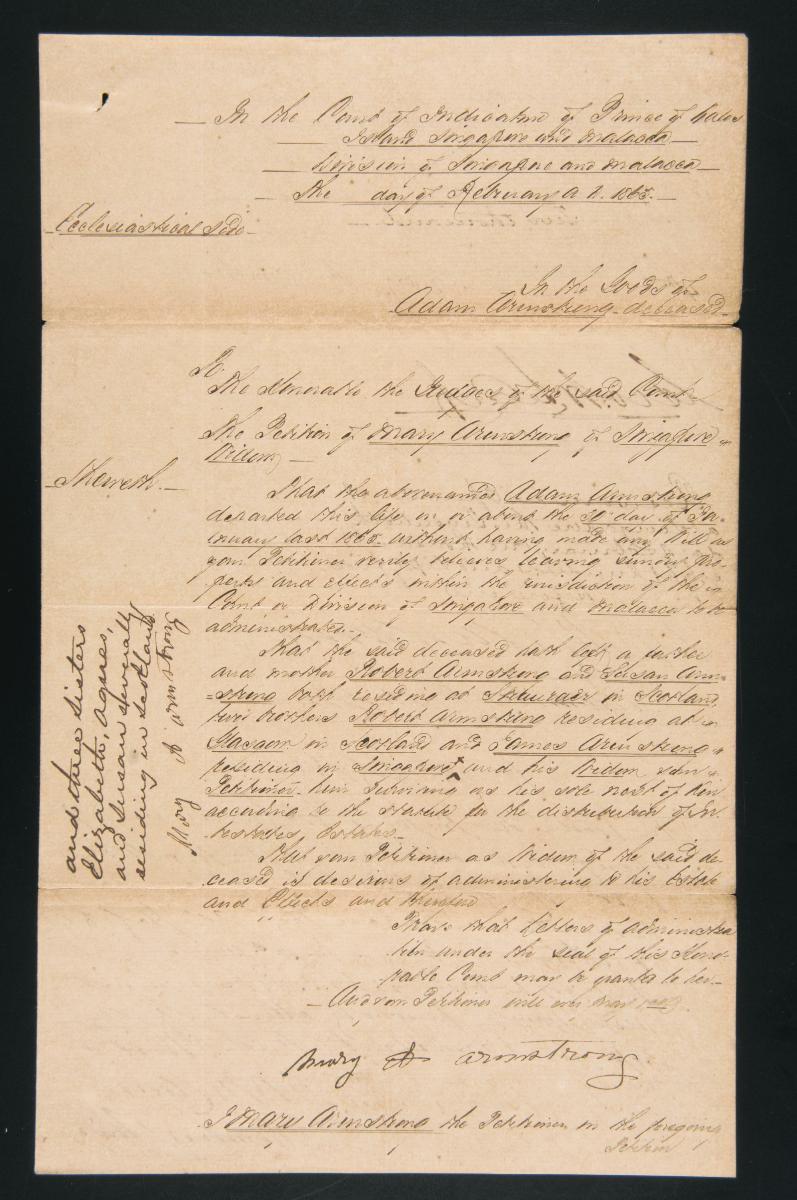 In the Court of Judicature of Prince of Wales
Island Singapore and Malacca
Division of Singapore and Malacca
The day of February A D. 1863.
Ecclesiastical Side
In the Goods of
Adam Armstrong deceased
To
The Honorable the Judges of the said Court
The Petition of Mary Armstrong of Singapore
Widow
Sheweth.
That the abovenamed Adam Armstrong
departed this life on or about the 30 day of Ja-
nuary last 1863. without having made any Will as
your Petitioner verily believes leaving sundry pro-
perty and effects within the jurisdiction of the
Court or Division of Singapore and Malacca to be
administered.
That the said deceased hath left a father
and mother Robert Armstrong and Susan Arm-
=strong both residing at Stranraer in Scotland
two brothers Robert Armstrong residing at
Glasgow in Scotland and James Armstrong
residing in Singapore + and his Widow your
Petitioner him surviving as his sole next of kin
according to the statute for the distribution of In-
testates, Estates.
and three sisters
Elizabeth, Agnes,
and Susan severally
residing in Scotland
Mary A Armstrong
That your Petitioner as Widow of the said de-
ceased is desirous of administering to his Estate
and Effects and therefore
Prays that Letters of administra
tion under the seal of this Hono-
rable Court may be granted to her
And your Petitioner will ever pray
Mary A Armstrong
I Mary Armstrong the Petitioner in the foregoing
Petition